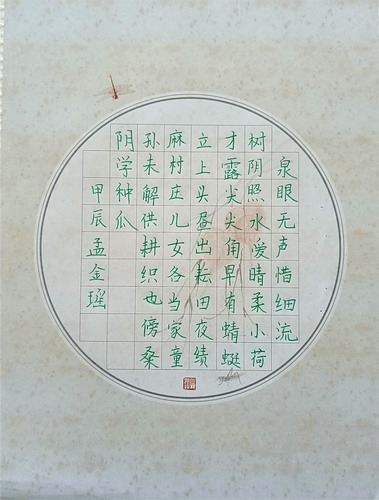 泉眼无声惜细流
树阴照水爱晴柔小荷
才露尖尖角早有蜻蜓
立上头昼出耘田夜绩
麻村庄儿女各当家童
孙未解供耕织也傍桑
阴学种瓜
甲辰孟金瑶